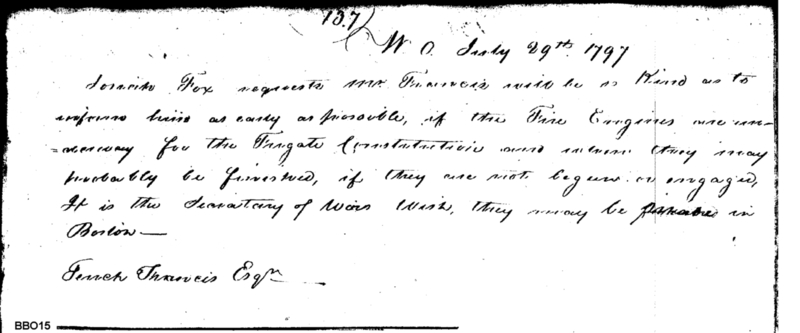 137
W. O. July 29th. 1797
Josiah Fox requests Mr. Francis will be so Kind as to
inform him as early as possible, if the Fire Engines are un=
=derway for the Frigate Constitution and when they may
probably be finished, if they are not begun or engaged,
It is the Secretary of Wars Wish, they may be in
Boston—
Tench Francis Esqr.
BBO15